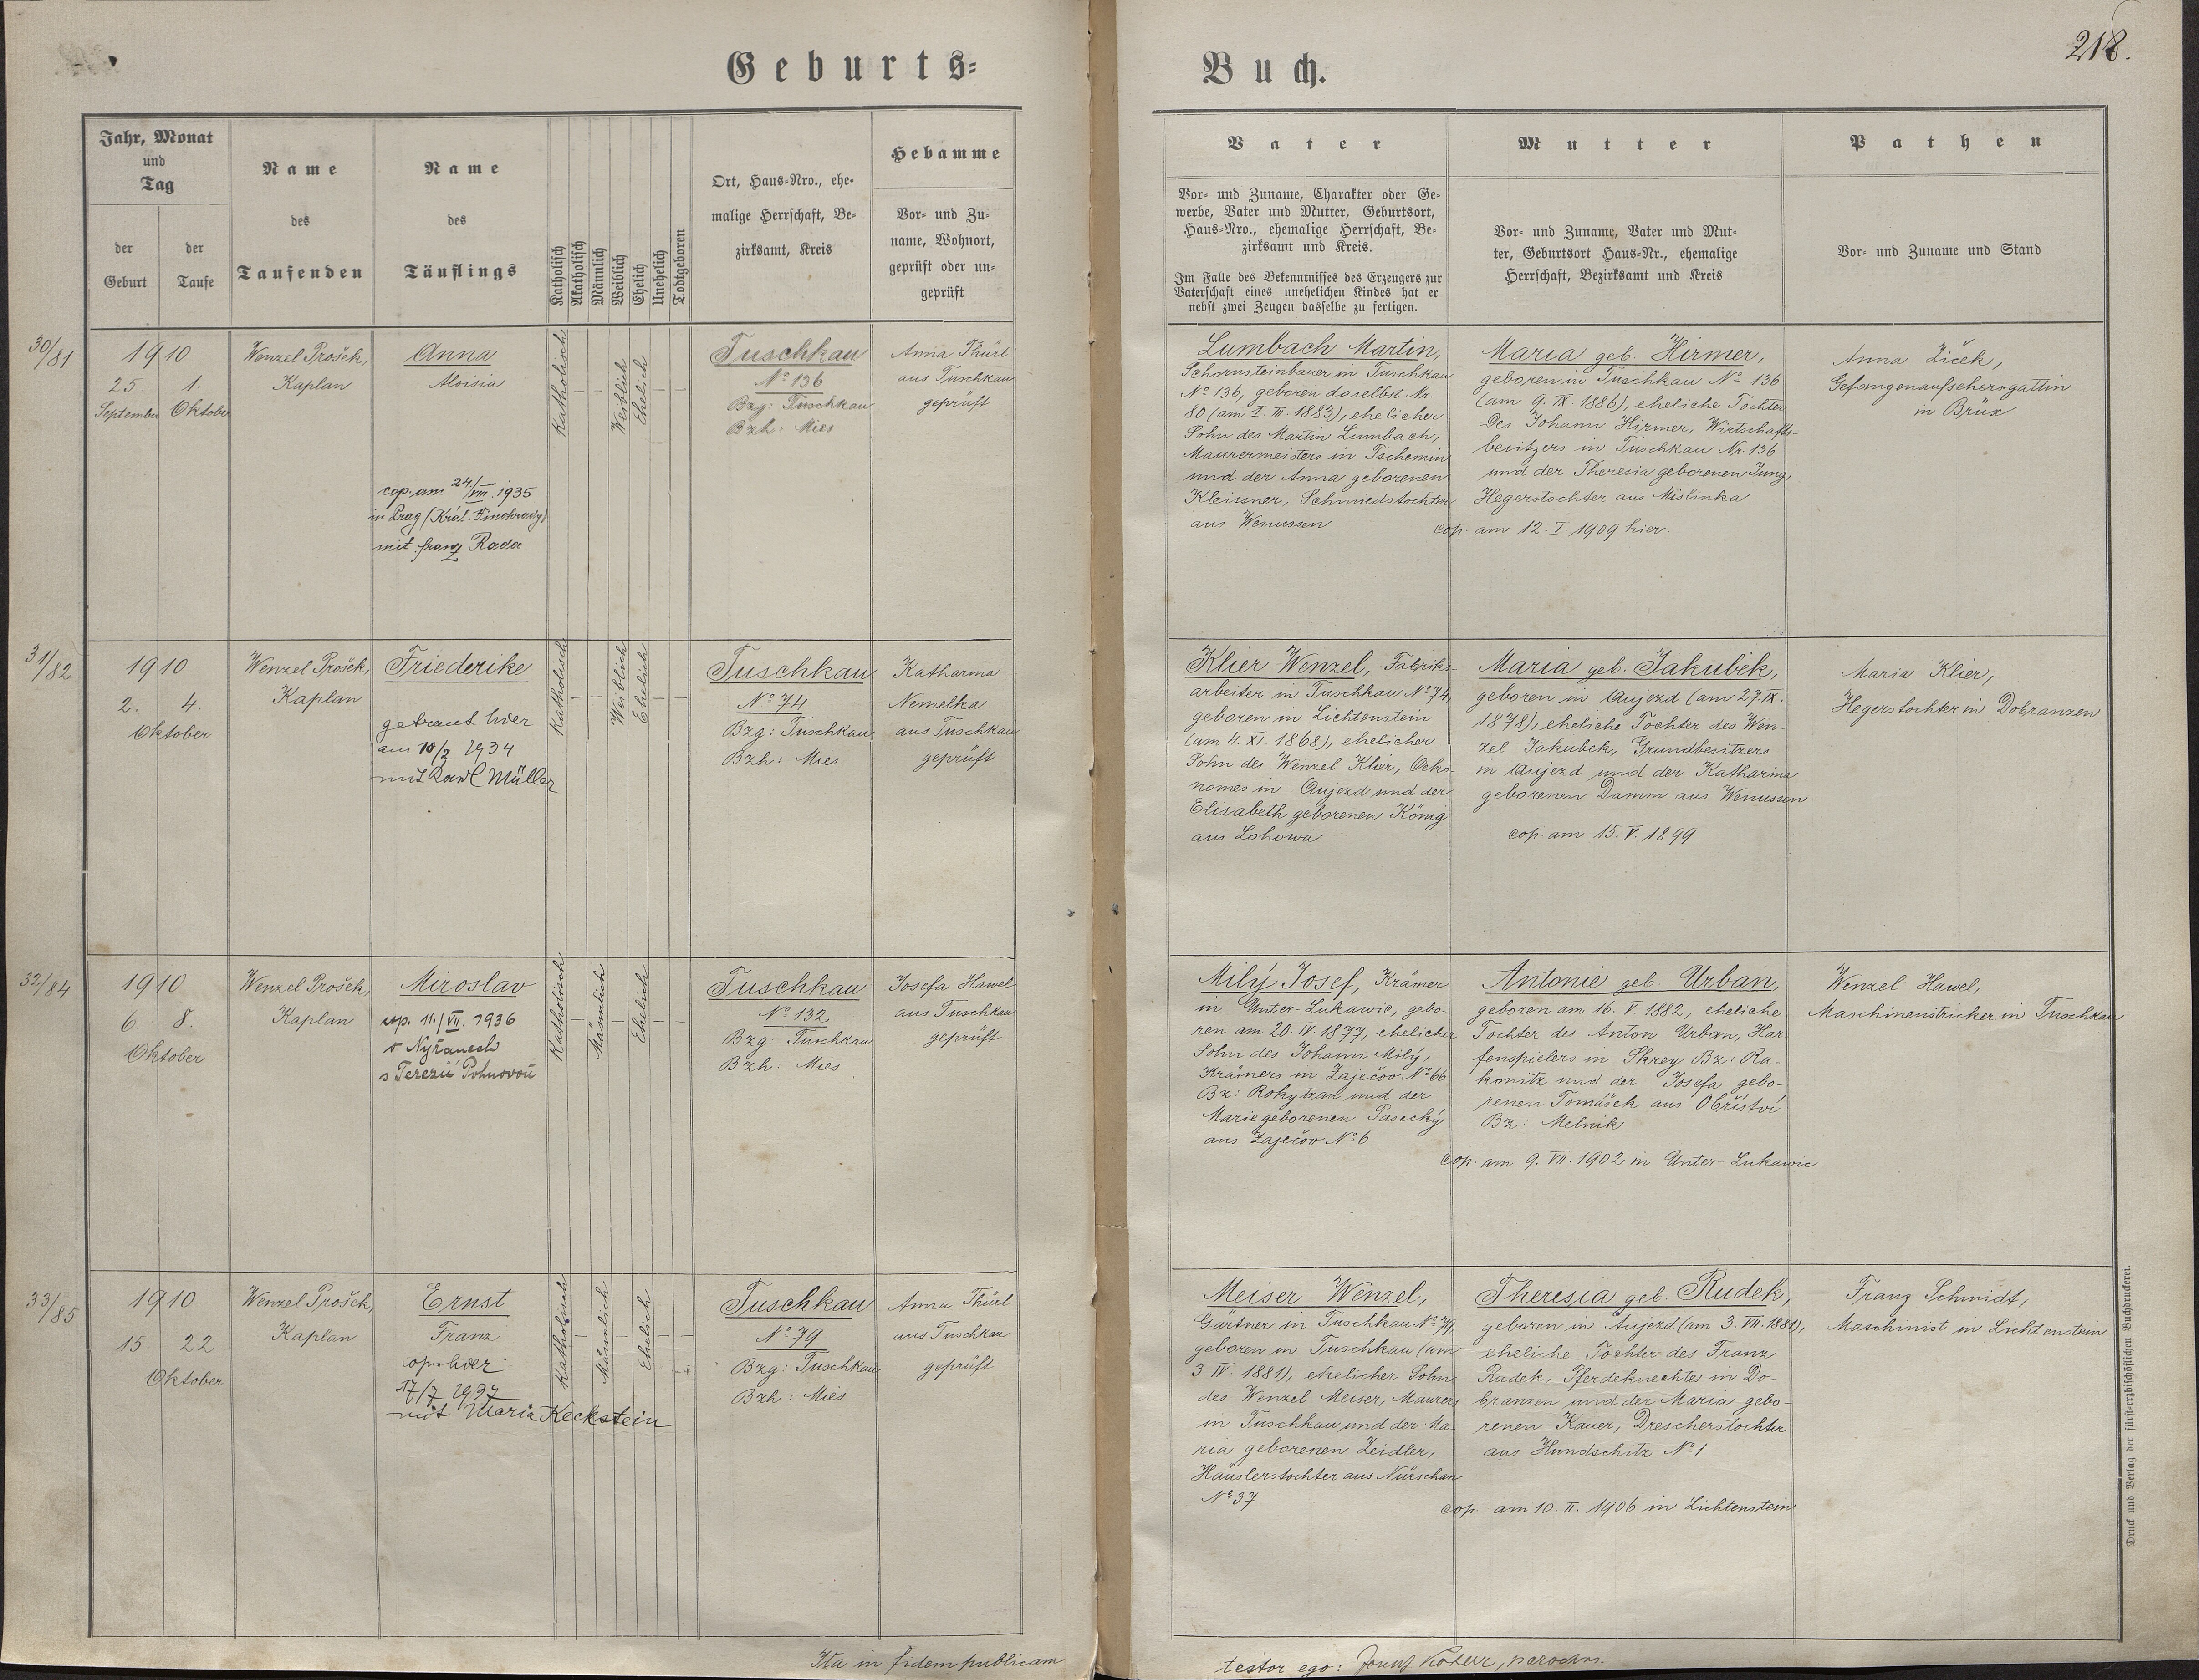 Geburts-
Buch.
218.
Jahr, Monat
und
Tag
der
Geburt
der
Taufe
Name
des
Taufenden
Name
des
Täuflings
Katholisch
Akatholisch
Männlich
Weiblich
Ehelich
Unehelich
Todtgeboren
Ort, Haus-Nro., ehe-
malige Herrschaft, Be-
zirksamt, Kreis
Hebamme
Vor- und Zu-
name, Wohnort,
geprüft oder un-
geprüft
Vater
Vor- und Zuname, Charakter oder Ge-
werbe, Vater und Mutter, Geburtsort,
Haus-Nro., ehemalige Herrschaft, Be-
zirksamt und Kreis.
Im Falle des Bekenntnisses des Erzeugers zur
Vaterschaft eines unehelichen Kindes hat er
nebst zwei Zeugen dasselbe zu fertigen.
Mutter
Vor- und Zuname, Vater und Mut-
ter, Geburtsort Haus-Nr., ehemalige
Herrschaft, Bezirksamt und Kreis
Pathen
Vor- und Zuname und Stand
30/81
1910
25. 1.
September Oktober
Wenzel Prošek,
Kaplan
Anna
Aloisia
cop. am 24./VIII. 1935
in Prag (Král. Vinohrady)
mit Franz Rada
Katholisch
Weiblich
Ehelich
Tuschkau
No 136
Bzg: Tuschkau
Bzh: Mies
Anna Thürl
aus Tuschkau
geprüft
Lumbach Martin,
Schornsteinbauer in Tuschkau
No 136, geboren daselbst Nr.
80 (am 1. III. 1883), ehelicher
Sohn des Martin Lumbach,
Maurermeisters in Tschemin
und der Anna geborenen
Kleissner, Schmiedstochter
aus Wenussen
Maria geb. Hirmer,
geboren in Tuschkau No 136
(am 9. IX. 1886), eheliche Tochter
des Johann Hirmer, Wirtschafts-
besitzers in Tuschkau Nr. 136
und der Theresia geborenen Jung,
Hegerstochter aus Mislinka
cop. am 12. I. 1909 hier.
Anna Žiček,
Gefangenaufsehersgattin
in Brüx
31/82
1910
2. 4.
Oktober
Wenzel Prošek,
Kaplan
Friederike
getraut hier
am 10/2 1934
mit Karl Müller
Katholisch
Weiblich
Ehelich
Tuschkau
No 74
Bzg: Tuschkau
Bzh: Mies
Katharina
Nemelka
aus Tuschkau
geprüft
Klier Wenzel, Fabriks-
arbeiter in Tuschkau No 74,
geboren in Lichtenstein
(am 4. XI. 1868), ehelicher
Sohn des Wenzel Klier, Oeko-
nomes in Aujezd und der
Elisabeth geborenen König
aus Lohowa
Maria geb. Jakubek,
geboren in Aujezd (am 27. IX.
1878), eheliche Tochter des Wen-
zel Jakubek, Grundbesitzers
in Aujezd und der Katharina
geborenen Damm aus Wenussen
cop. am 15. V. 1899
Maria Klier,
Hegerstochter in Dobranzen
32/84
1910
6. 8.
Oktober
Wenzel Prošek,
Kaplan
Miroslav
cop. 11./VII. 1936
v Nýřanech
s Terezií
Katholisch
Männlich
Ehelich
Tuschkau
No 132
Bzg: Tuschkau
Bzh: Mies
Josefa Hawel
aus Tuschkau
geprüft
Milý Josef, Krämer
in Unter-Lukawic, gebo-
ren am 20. IV. 1877, ehelicher
Sohn des Johann Milý,
Krämers in Zaječov No 66
Bz: Rokytzan und der
Marie geborenen Pasecký
aus Zaječov No 6
Antonie geb. Urban,
geboren am 16. V. 1882, eheliche
Tochter des Anton Urban, Har-
fenspielers in Skrey Bz: Ra-
konitz und der Josefa gebo-
renen Tomášek aus Obříství
Bz: Melnik
cop. am 9. VII. 1902 in Unter-Lukawic
Wenzel Hawel,
Maschinenstricker in Tuschkau
33/85
1910
15. 22
Oktober
Wenzel Prošek,
Kaplan
Ernst
Franz
cop. hier
17/7 1937
mit Maria Keckstein
Katholisch
Männlich
Ehelich
Tuschkau
No 79
Bzg: Tuschkau
Bzh: Mies
Anna Thürl
aus Tuschkau
geprüft
Meiser Wenzel,
Gärtner in Tuschkau No 79,
geboren in Tuschkau (am
3. IV. 1881), ehelicher Sohn
des Wenzel Meiser, Maurers
in Tuschkau und der Ma-
ria geborenen Zeidler,
Häuslerstochter aus Nürschan
No 37
Theresia geb. Rudek,
geboren in Aujezd (am 3. VII. 1881),
eheliche Tochter des Franz
Rudek, Pferdeknechtes in Do-
branzen und der Maria gebo-
renen Kauer, Drescherstochter
aus Hundschitz No 1
cop. am 10. II. 1906 in Lichtenstein
Franz Schmidt,
Maschinist in Lichtenstein
Druck und Verlag der fürst-erzbischöflichen Buchdruckerei.
Ita in fidem publicam
testor ego: Josef parochus.